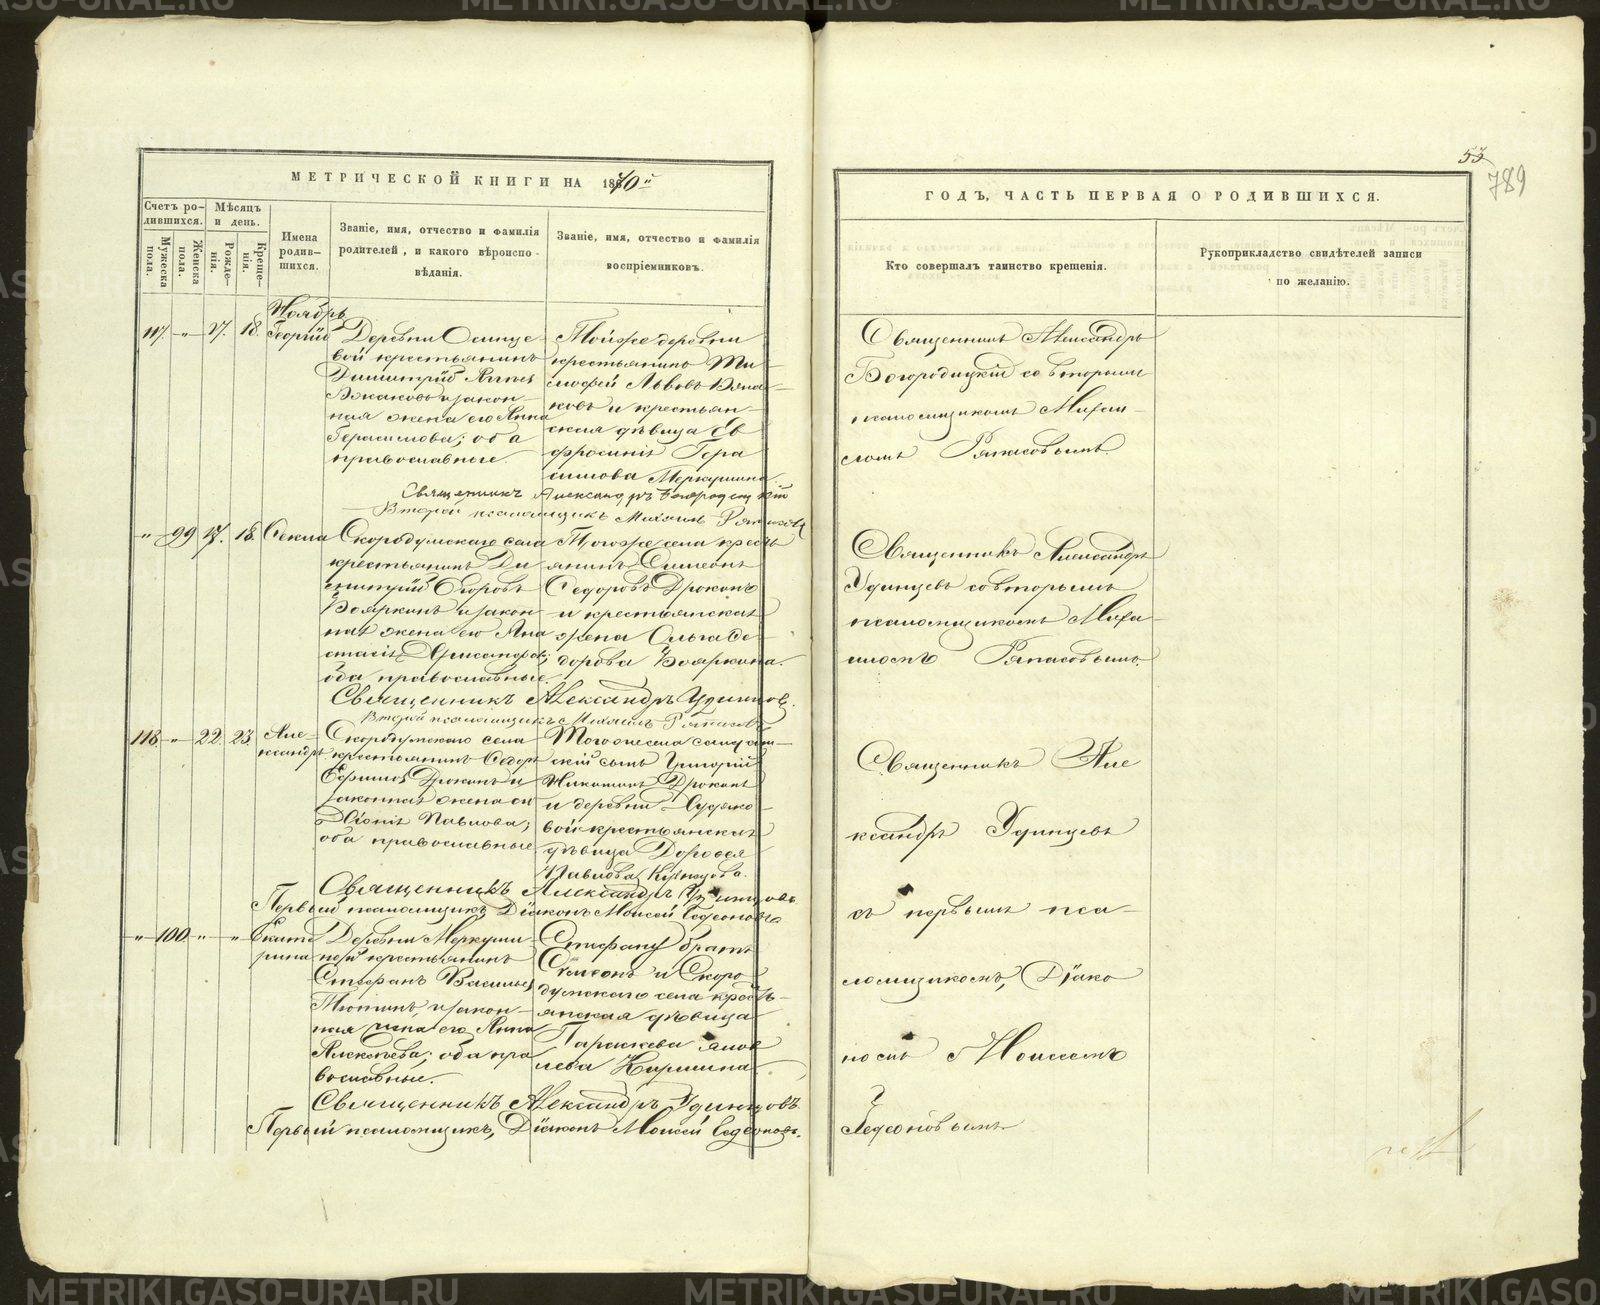 МЕТРИЧЕСКОЙ КНИГИ НА 1870й
Счетъ родившихся.
Мужеска пола.
Женска пола.
Мѣсяцъ и день.
Рожденія.
Крещенія.
Имена родившихся.
Званіе, имя, отчество и фамилія
родителей, и какого вѣроиспо-
вѣданія.
Званіе, имя, отчество и фамилія
воспріемниковъ.
Ноябрь
117. " 17. 18. Георгій
Деревни Осинце-
вой крестьянинъ
Димитрій
и закон-
ная жена его Анна
Герасимова; оба
православные
Тойже деревни
крестьянинъ Ти-
мофей Львовъ
ковъ и крестьян-
ская дѣвица Ев
фросинія Гера
симова Меркушина.
Священникъ Александръ Богородицкій
Второй псаломщикъ Михаилъ
" 99 17. 18. Фекла
Скородумскаго села
крестьянинъ Ди
митрій Егоровъ
Бояркинъ и закон
ная жена его Ана
стасія
оба православные.
Тогоже села кресть
янинъ Симеонъ
Федоровъ Дрокинъ
и крестьянская
жена Ольга Ѳе-
дорова Бояркина.
Священникъ Александръ Удинцовъ.
Второй псаломщикъ Михаилъ
118 " 22. 23. Але-
ксандръ
Скородумскаго села
крестьянинъ Федоръ
Ефимовъ Дрокинъ и
законная жена его
Павлова;
оба православные
Тогоже села
сынъ Григорій
Никитинъ Дрокинъ
и деревни
вой крестьянская
дѣвица Дорофея
Павлова
Священникъ Александръ Удинцовъ
Первый псаломщикъ, Діаконъ Моисей Гедеоновъ
" 100 " " Екате
рина
Деревни Меркуши-
ной крестьянинъ
Стефанъ Васильевъ
и закон-
ная жена его Анна
Алексѣева; оба пра
вославные.
Стефану братъ
Симеонъ и Скоро
думскаго села кресть-
янская дѣвица
Параскева Яков
лева
Священникъ Александръ Удинцовъ.
Первый псаломщикъ, Діаконъ Моисей Гедеоновъ.
53
789
ГОДЪ, ЧАСТЬ ПЕРВАЯ О РОДИВШИХСЯ.
Кто совершалъ таинство крещенія.
Рукоприкладство свидѣтелей записи
по желанію.
Священникъ Александръ
Богородицкій со вторымъ
псаломщикомъ Михаи-
ломъ
Священникъ Александръ
Удинцевъ со вторымъ
псаломщикомъ Миха-
иломъ
Священникъ Але
ксандръ Удинцевъ
съ первымъ пса-
ломщикомъ, Діако
номъ Моисеемъ
Гедеоновымъ